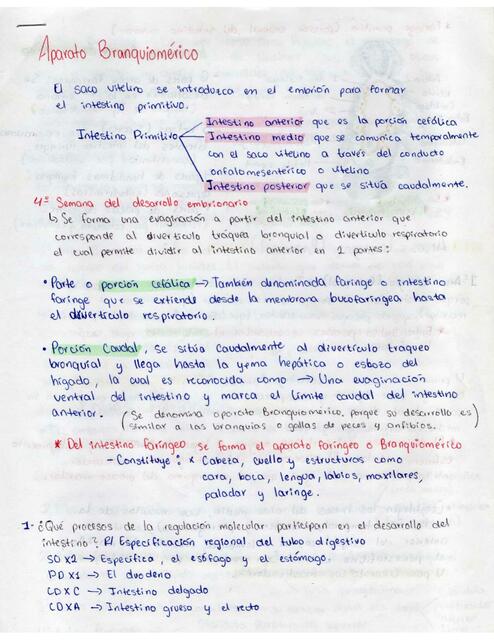 Aparato Branquiomérico
El saco vitelino se introduzca en el embrión para formar
el intestino primitivo.
Intestino anterior que es la porción cefálica
Intestino Primitivo Intestino medio que se comunica temporalmente
con el saco vitelino a través del conducto
onfalomesentérico o vitelino
Intestino posterior que se sitúa caudalmente.
4ª Semana del desarrollo embrionario
↳ Se forma una evaginación a partir del intestino anterior que
corresponde al divertículo traqueo bronquial o divertículo respiratorio
el cual permite dividir al intestino anterior en 2 partes:
• Parte o porción cefálica → También denominada faringe o intestino
faringe que se extiende desde la membrana bucofaríngea hasta
el divertículo respiratorio.
• Porción Caudal, se sitúa caudalmente al divertículo traqueo
bronquial y llega hasta la yema hepática o esbozo del
hígado, la cual es reconocida como → Una evaginación
ventral del intestino y marca el límite caudal del intestino
anterior. (Se denomina aparato Branquiomérico, porque su desarrollo es
similar a las branquias o gallas de peces y anfibios.)
* Del intestino faríngeo se forma el aparato faríngeo o Branquiomérico
- Constituye: * Cabeza, cuello y estructuras como
cara, boca, lengua, labios, maxilares,
paladar y laringe.
1- ¿Qué procesos de la regulación molecular participan en el desarrollo del
intestino? R/ Especificación regional del tubo digestivo
SOX2 → Especifica, el esófago y el estómago.
PDX1 → El duodeno
CDXC → Intestino delgado
CDXA → Intestino grueso y el recto